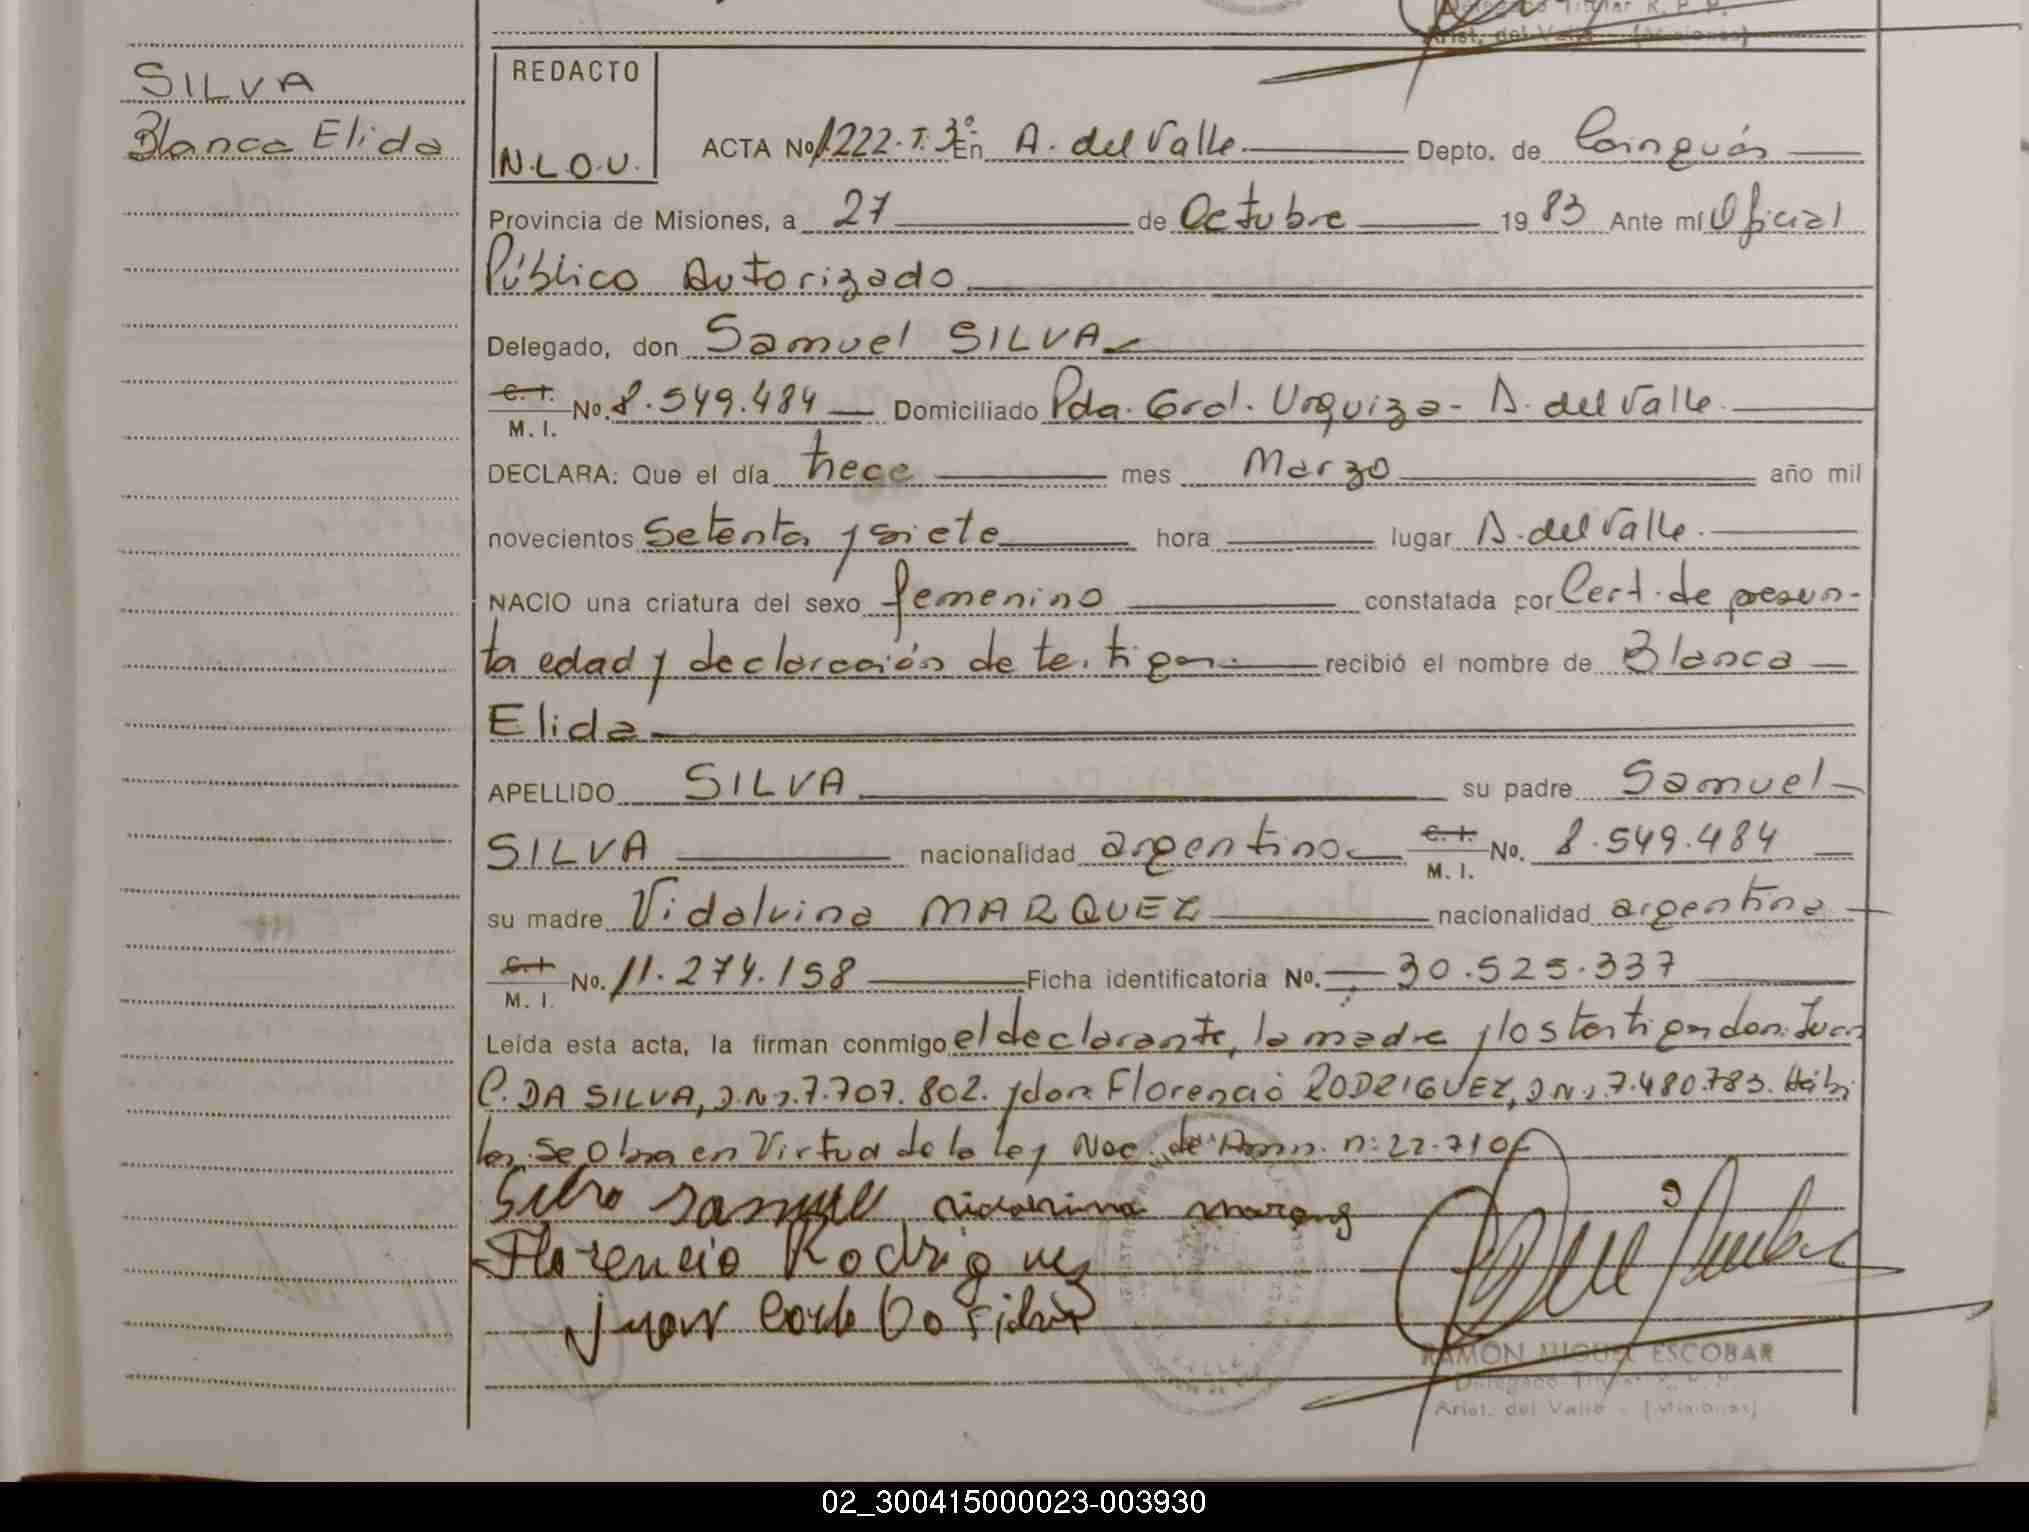 Delegado Titular R. P. P.
Arist. del Valle - (Misiones)
SILVA
Blanca Elida
REDACTO
N.L.O.U.
ACTA Nº 1222.T.3º En A. del Valle Depto. de Cainguás
Provincia de Misiones, a 27 de Octubre 1983 Ante mí Oficial
Público Autorizado
Delegado, don Samuel SILVA
C. I. M. I. No. 8.549.484 Domiciliado Pda. Gral. Urquiza - A. del Valle.
DECLARA: Que el día trece mes Marzo año mil
novecientos setenta y siete hora lugar A. del Valle.
NACIO una criatura del sexo femenino constatada por Cert. de presun-
ta edad y declaración de testigos. recibió el nombre de Blanca
Elida
APELLIDO SILVA su padre Samuel
SILVA nacionalidad argentino C. I. M. I. No. 8.549.484
su madre Vidalvina MARQUEZ nacionalidad argentina
C. I. M. I. No. 11.274.158 Ficha identificatoria No. 30.525.337
Leída esta acta, la firman conmigo el declarante, la madre y los testigos don: Juan
C. DA SILVA, D.N.I. 7.707.802. y don Florencio RODRIGUEZ, D.N.I. 7.480.783. Hábi
les. Se Obra en Virtud de la ley Nac. de Amn. n: 22.710
Silva Samuel vidalvina
Florencio Rodrigues
Juan Carlo Da Silva
RAMON MIGUEL ESCOBAR
Delegado Titular R. P. P.
Arist. del Valle - (Misiones)
02_300415000023-003930